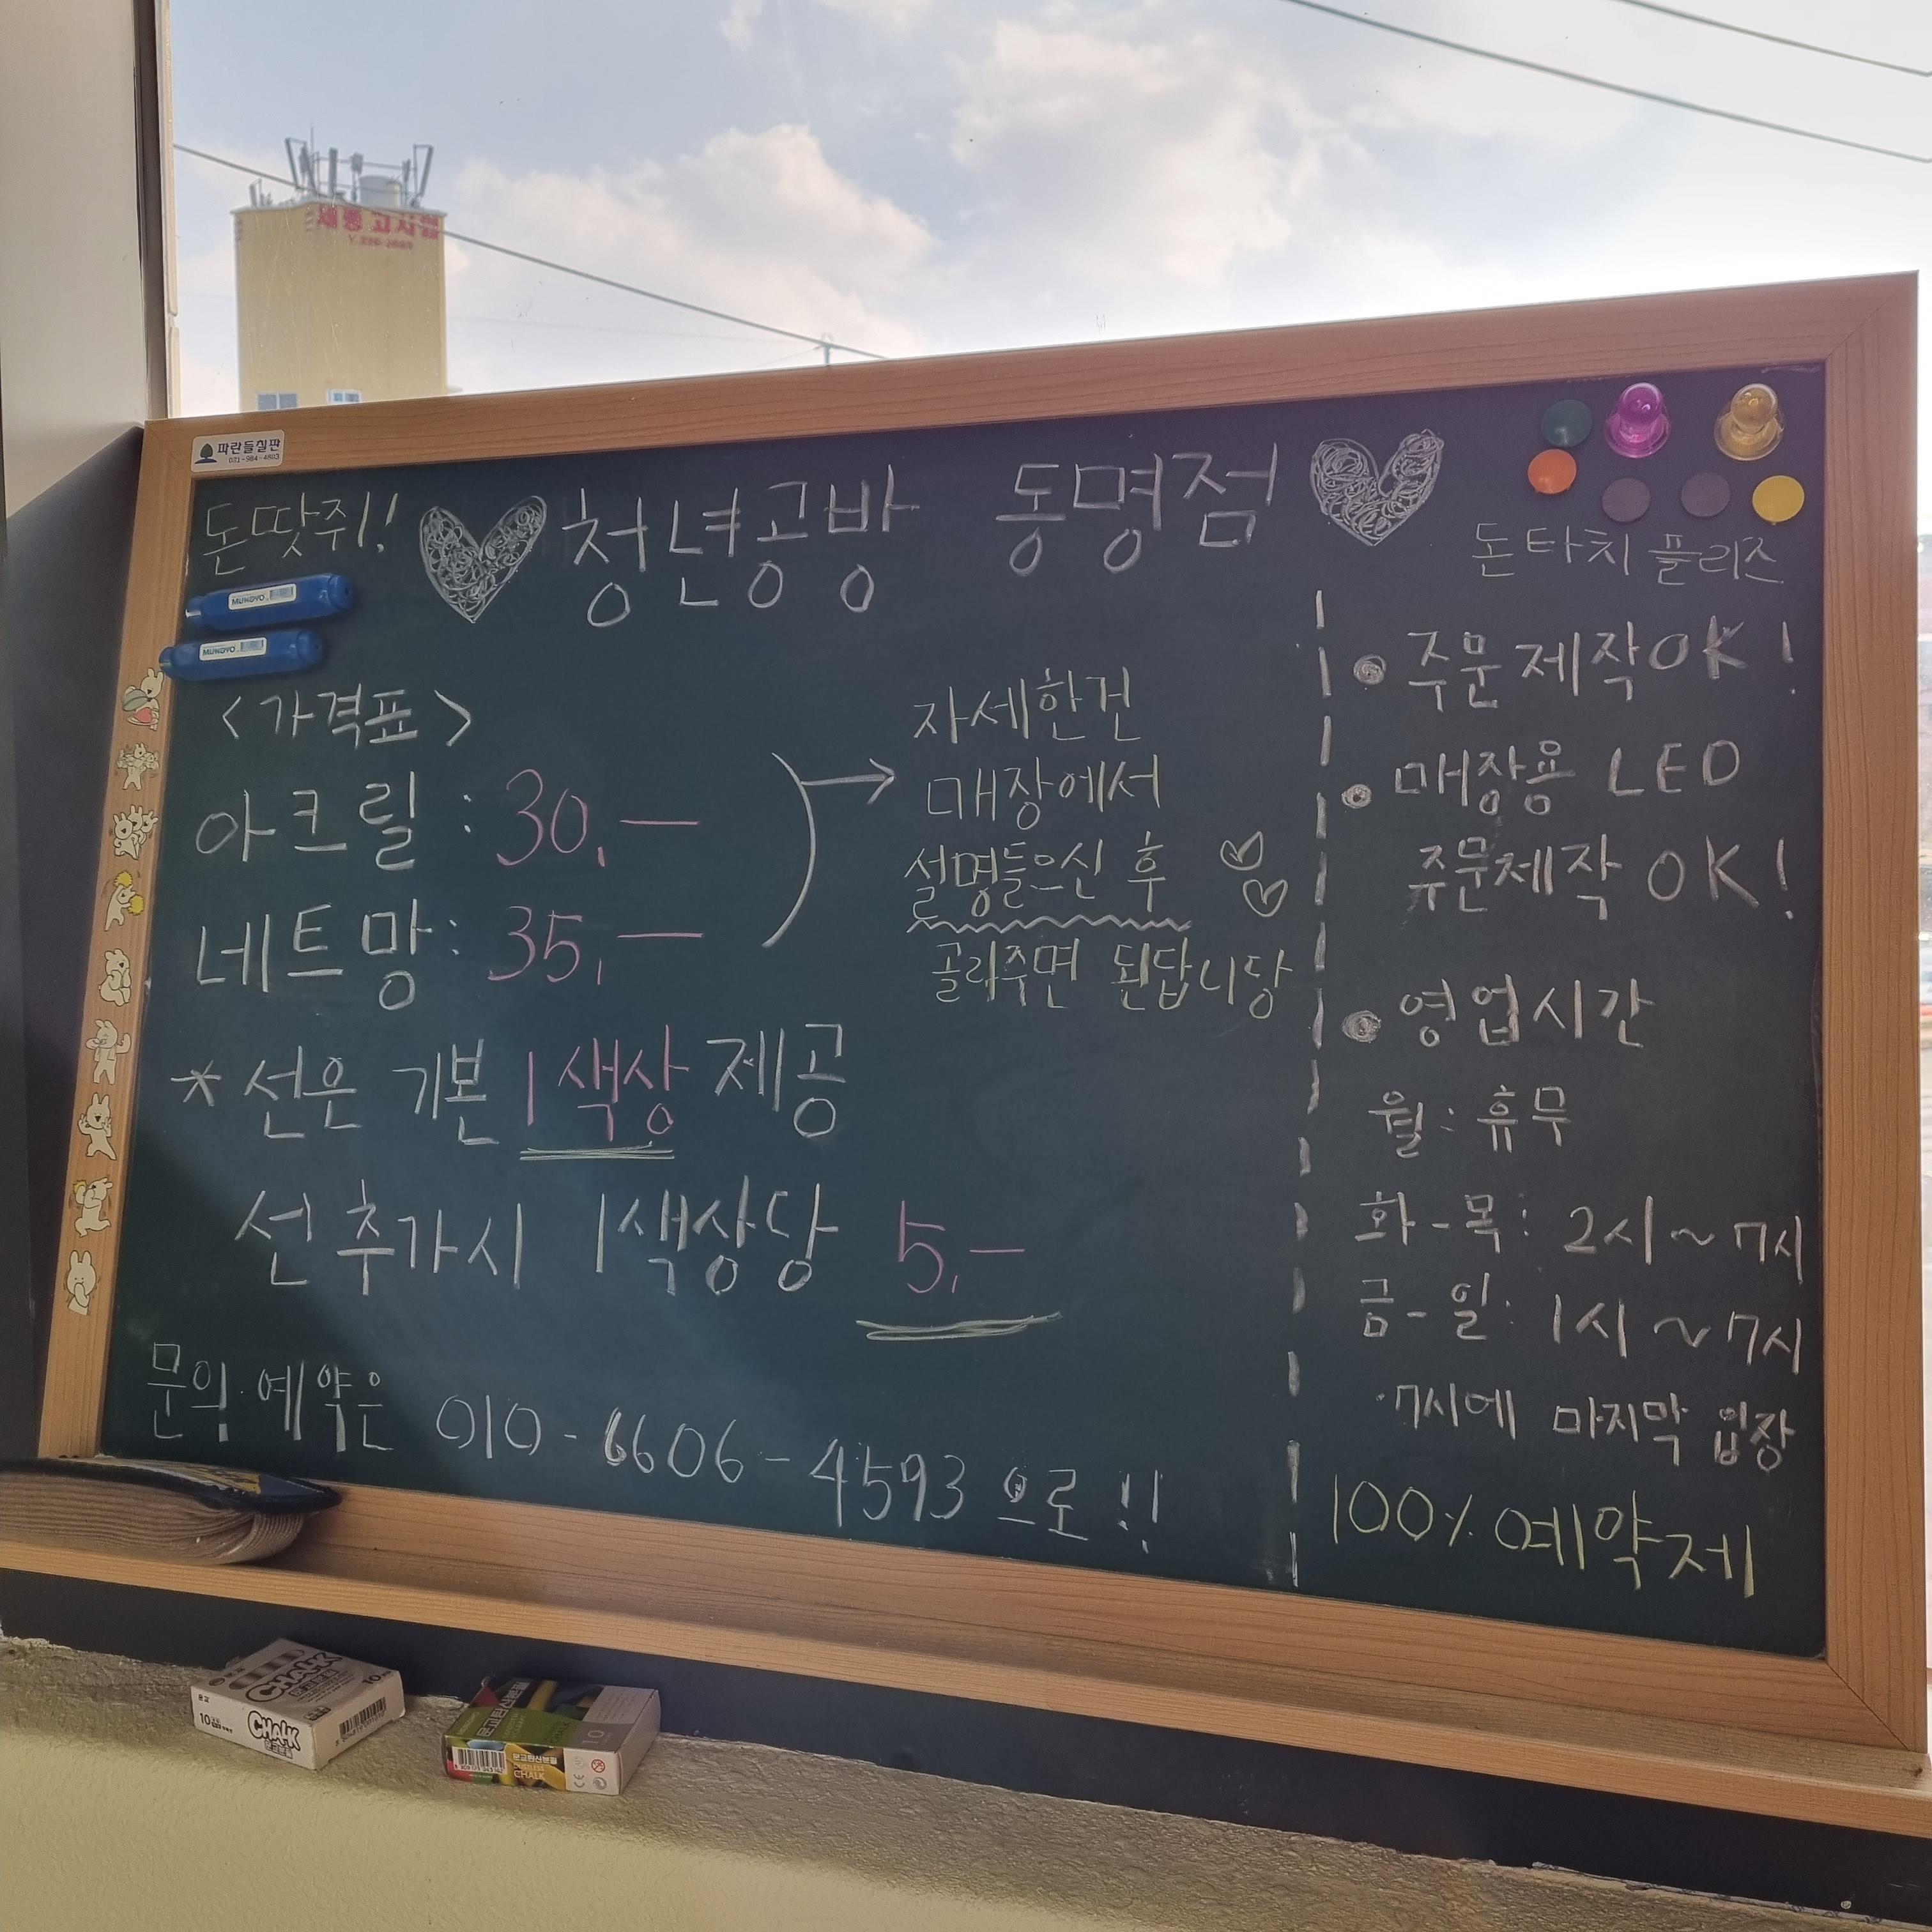 파란들칠판
031-984-4803
돈땃쥐!
청년공방 동명점
돈타치 플리즈
MUNGYO
MUNGYO
<가격표>
아크릴 : 30,—
네트망 : 35,—
자세한건
매장에서
설명들으신 후
골라주면 된답니당
*선은 기본 1색상 제공
선 추가시 1색상당 5,—
문의·예약은 010-6606-4593 으로!!
• 주문제작OK!
• 매장용 LED
주문제작 OK!
• 영업시간
월: 휴무
화-목: 2시~7시
금-일: 1시~7시
·7시에 마지막 입장
100% 예약제
CHALK
10
CHALK
문교분필
문교탄산분필
DUSTLESS
CHALK